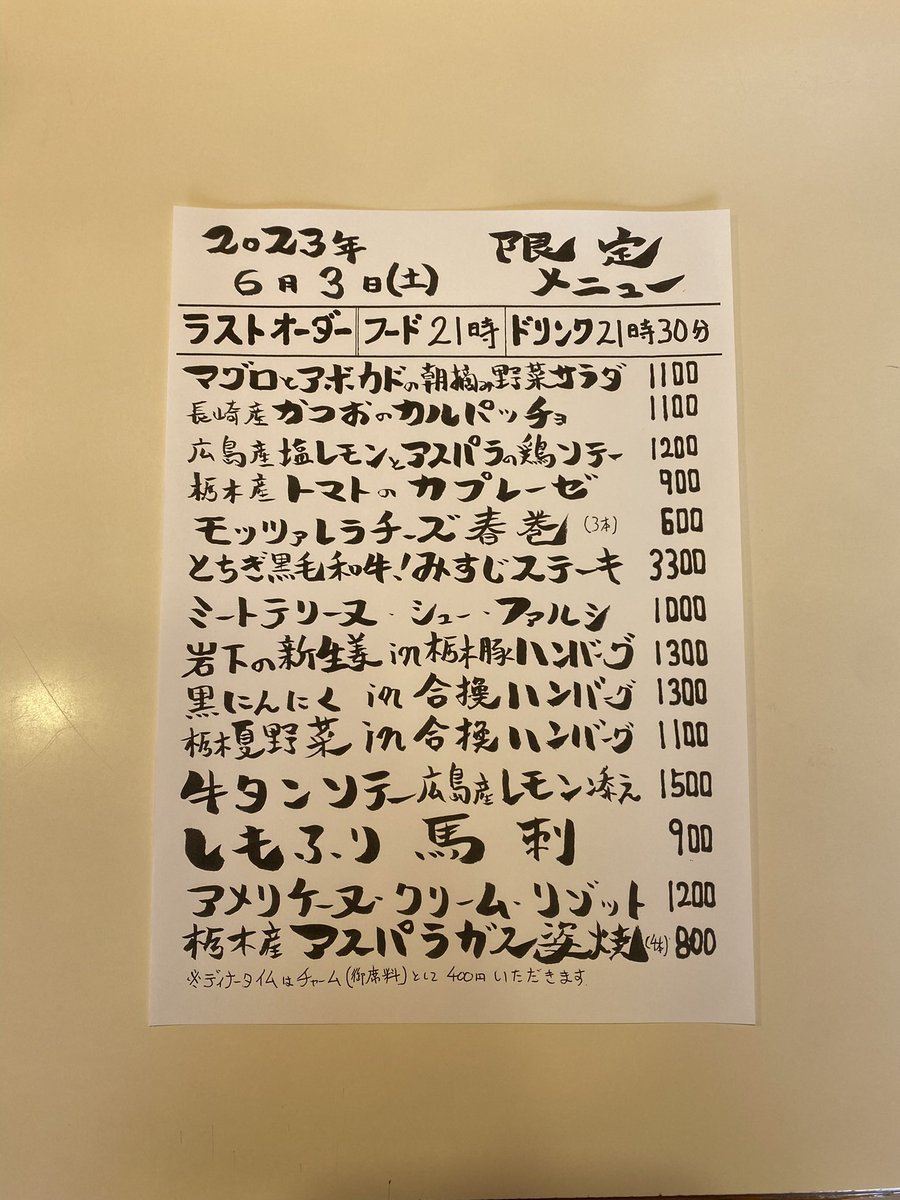 2023年 限定
6月3日(土) メニュー
ラストオーダー フード21時 ドリンク21時30分
マグロとアボカドの朝摘み野菜サラダ 1100
長崎産かつおのカルパッチョ 1100
広島産塩レモンとアスパラの鶏ソテー 1200
栃木産トマトのカプレーゼ 900
モッツァレラチーズ春巻(3本) 600
とちぎ黒毛和牛!みすじステーキ 3300
ミートテリーヌ・シュー・ファルシ 1000
岩下の新生姜in栃木豚ハンバーグ 1300
黒にんにくin合挽ハンバーグ 1300
栃木夏野菜in合挽ハンバーグ 1100
牛タンソテー広島産レモン添え 1500
しもふり馬刺 900
アメリケーヌ・クリーム・リゾット 1200
栃木産アスパラガス姿焼(4本) 800
※ディナータイムはチャーム(御席料)として400円いただきます。